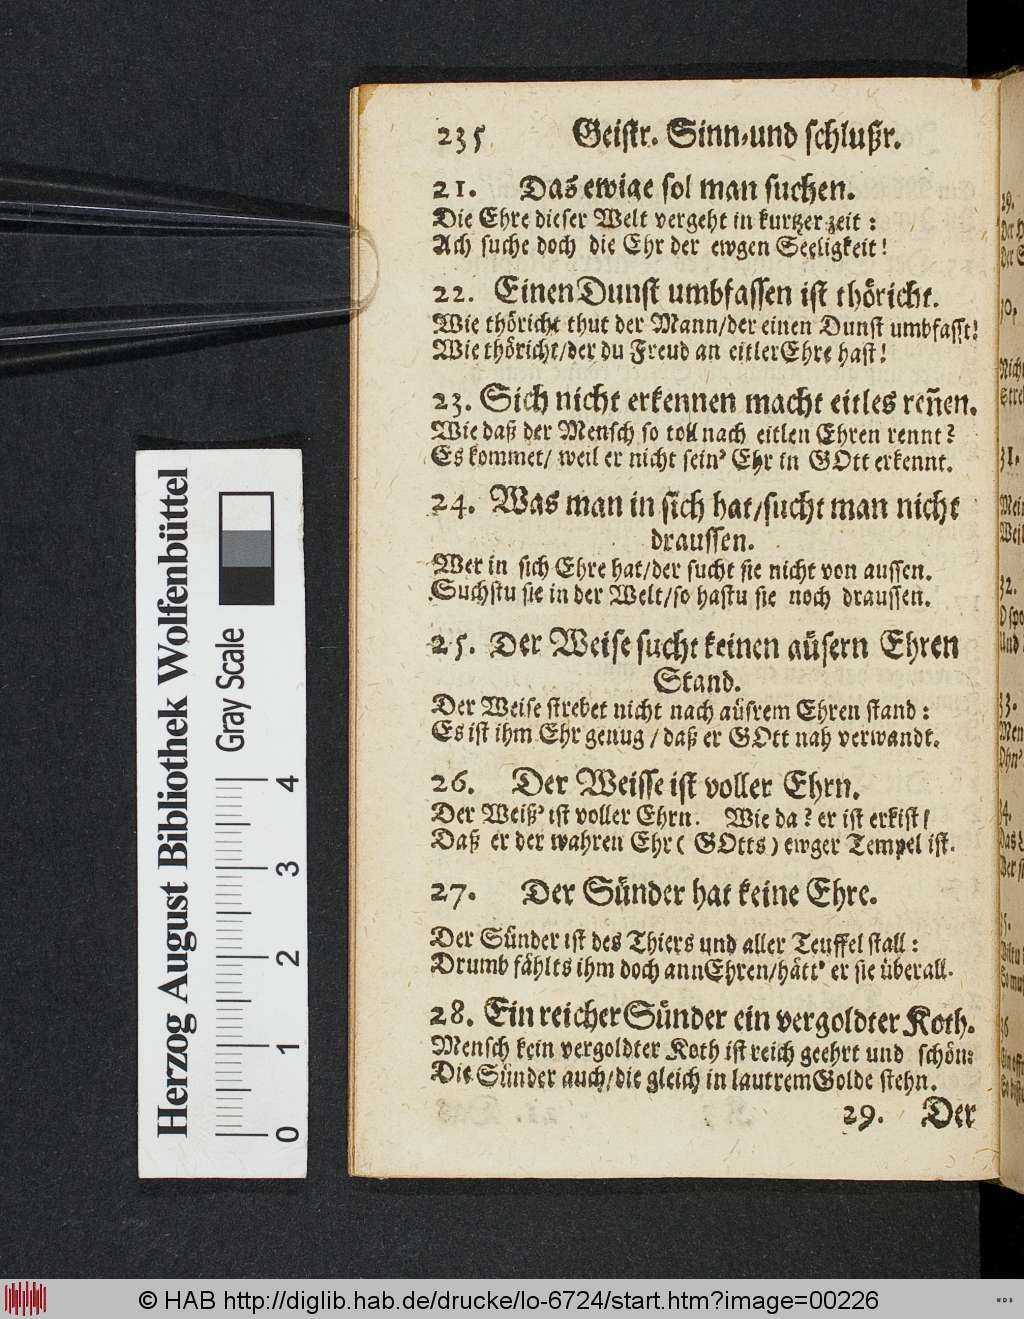 235 Geistr. Sinn-und schlußr.
21. Das ewige sol man suchen.
Die Ehre dieser Welt vergeht in kurtzer zeit :
Ach suche doch die Ehr der ewgen Seeligkeit!
22. Einen Dunst umbfassen ist thöricht.
Wie thöricht thut der Mann/der einen Dunst umbfasst!
Wie thöricht/der du Freud an eitler Ehre hast!
23. Sich nicht erkennen macht eitles reñen.
Wie daß der Mensch so toll nach eitlen Ehren rennt?
Es kommet/ weil er nicht sein' Ehr in GOtt erkennt.
24. Was man in sich hat/sucht man nicht
draussen.
Wer in sich Ehre hat/der sucht sie nicht von aussen.
Suchstu sie in der Welt/so hastu sie noch draussen.
25. Der Weise sucht keinen aüsern Ehren
Stand.
Der Weise strebet nicht nach aüsrem Ehren stand :
Es ist ihm Ehr genug / daß er GOtt nah verwandt.
26. Der Weisse ist voller Ehrn.
Der Weiß' ist voller Ehrn. Wie da? er ist erkist/
Daß er der wahren Ehr ( GOtts) ewger Tempel ist.
27. Der Sünder hat keine Ehre.
Der Sünder ist des Thiers und aller Teuffel stall :
Drumb fählts ihm doch ann Ehren/hätt' er sie überall.
28. Ein reicher Sünder ein vergoldter Koth.
Mensch kein vergoldter Koth ist reich geehrt und schön:
Die Sünder auch/die gleich in lautrem Golde stehn.
29. Der
Herzog August Bibliothek Wolfenbüttel
Gray Scale
0 1 2 3 4
© HAB http://diglib.hab.de/drucke/lo-6724/start.htm?image=00226